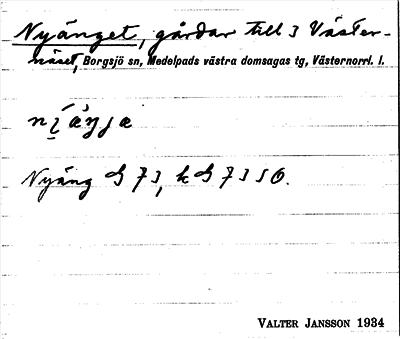 Nyänget, gårdar till 3 Väster-
näset, Borgsjö sn, Medelpads västra domsagas tg, Västernorrl. l.
Nyäng G 73, k G 73 50.
VALTER JANSSON 1934